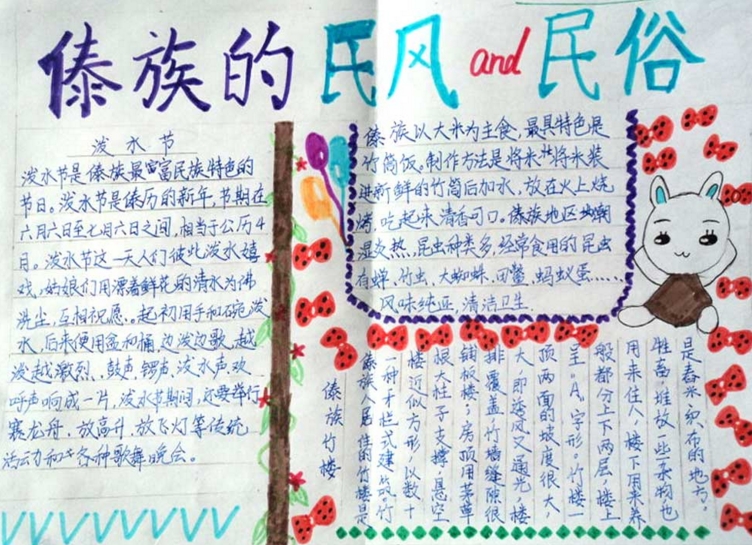 傣族的民风and民俗
泼水节
泼水节是傣族最富民族特色的
节日。泼水节是傣历的新年,节期在
六月六日至七月六日之间,相当于公历4
月。泼水节这一天人们彼此泼水嬉
戏,姑娘们用漂着鲜花的清水为佛
洗尘,互相祝愿。起初用手和碗泼
水,后来便用盆和桶,边泼边歌,越
泼越激烈,鼓声,锣声,泼水声,欢
呼声响成一片,泼水节期间,还要举行
赛龙舟,放高升,放飞灯等传统
活动和各种歌舞晚会。
傣族以大米为主食,最具特色是
竹筒饭。制作方法是将米将米装
进新鲜的竹筒后加水,放在火上烧
烤,吃起来清香可口。傣族地区潮
湿炎热,昆虫种类多,经常食用的昆虫
有蝉,竹虫,大蜘蛛,田鳖,蚂蚁蛋……
风味纯正,清洁卫生
傣族竹楼
傣族人居住的竹楼是
一种干栏式建筑。竹
楼近似方形,以数十
根大柱子支撑,悬空
铺板楼;房顶用茅草
排覆盖,竹墙缝隙很
大,即透风又通光,楼
顶两面的坡度很大,
呈"A"字形。竹楼一
般都分上下两层,楼上
用来住人,楼下用来养
牲畜,堆放一些杂物也
是舂米、织布的地方。